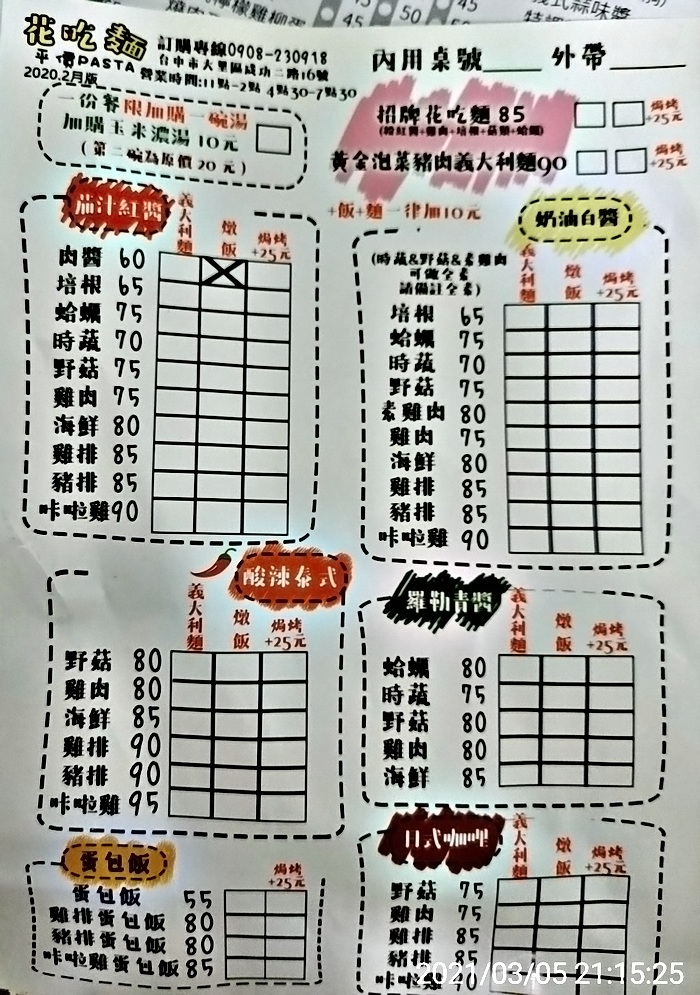 檸檬雞柳蛋
45
50
45
義式蒜味醬
花吃麵
平價PASTA
2020.2月版
訂購專線0908-230918
台中市大里區成功二路16號
營業時間:11點-2點 4點30-7點30
內用桌號____ 外帶____
一份餐限加購一碗湯
加購玉米濃湯 10元
(第二碗為原價 20 元)
招牌花吃麵 85
(粉紅醬+雞肉+培根+菇類+蛤蠣)
焗烤
+25元
黃金泡菜豬肉義大利麵90
焗烤
+25元
+飯+麵一律加10元
茄汁紅醬
義大利麵 燉飯 焗烤+25元
肉醬 60
培根 65
蛤蠣 75
時蔬 70
野菇 75
雞肉 75
海鮮 80
雞排 85
豬排 85
咔啦雞 90
奶油白醬
(時蔬&野菇&素雞肉
可做全素
請備註全素)
義大利麵 燉飯 焗烤+25元
培根 65
蛤蠣 75
時蔬 70
野菇 75
素雞肉 80
雞肉 75
海鮮 80
雞排 85
豬排 85
咔啦雞 90
酸辣泰式
義大利麵 燉飯 焗烤+25元
野菇 80
雞肉 80
海鮮 85
雞排 90
豬排 90
咔啦雞 95
羅勒青醬
義大利麵 燉飯 焗烤+25元
蛤蠣 80
時蔬 75
野菇 80
雞肉 80
海鮮 85
蛋包飯
焗烤
+25元
蛋包飯 55
雞排蛋包飯 80
豬排蛋包飯 80
咔啦雞蛋包飯 85
日式咖哩
義大利麵 燉飯 焗烤+25元
野菇 75
雞肉 75
雞排 85
豬排 85
2021/03/05 21:15:25